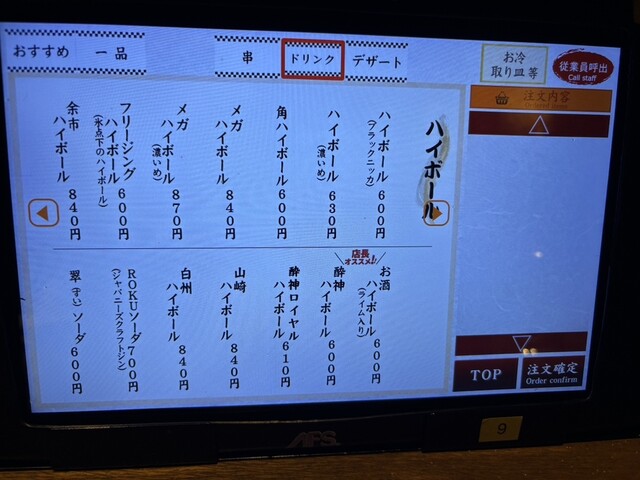 おすすめ
一品
串
ドリンク
デザート
お冷
取り皿等
従業員呼出
Call staff
注文内容
ハイボール
ハイボール 600円
(ブラックニッカ)
ハイボール 630円
(濃いめ)
角ハイボール 600円
メガ
ハイボール 840円
メガ
ハイボール 870円
(濃いめ)
フリージング
ハイボール 600円
(氷点下のハイボール)
余市
ハイボール 840円
お酒
ハイボール 600円
(ライム入り)
店長
オススメ!
酔神
ハイボール 600円
酔神ロイヤル
ハイボール 610円
山崎
ハイボール 840円
白州
ハイボール 840円
ROKUソーダ 700円
(ジャパニーズクラフトジン)
翠(すい)ソーダ 600円
TOP
注文確定
Order confirm
APS
9